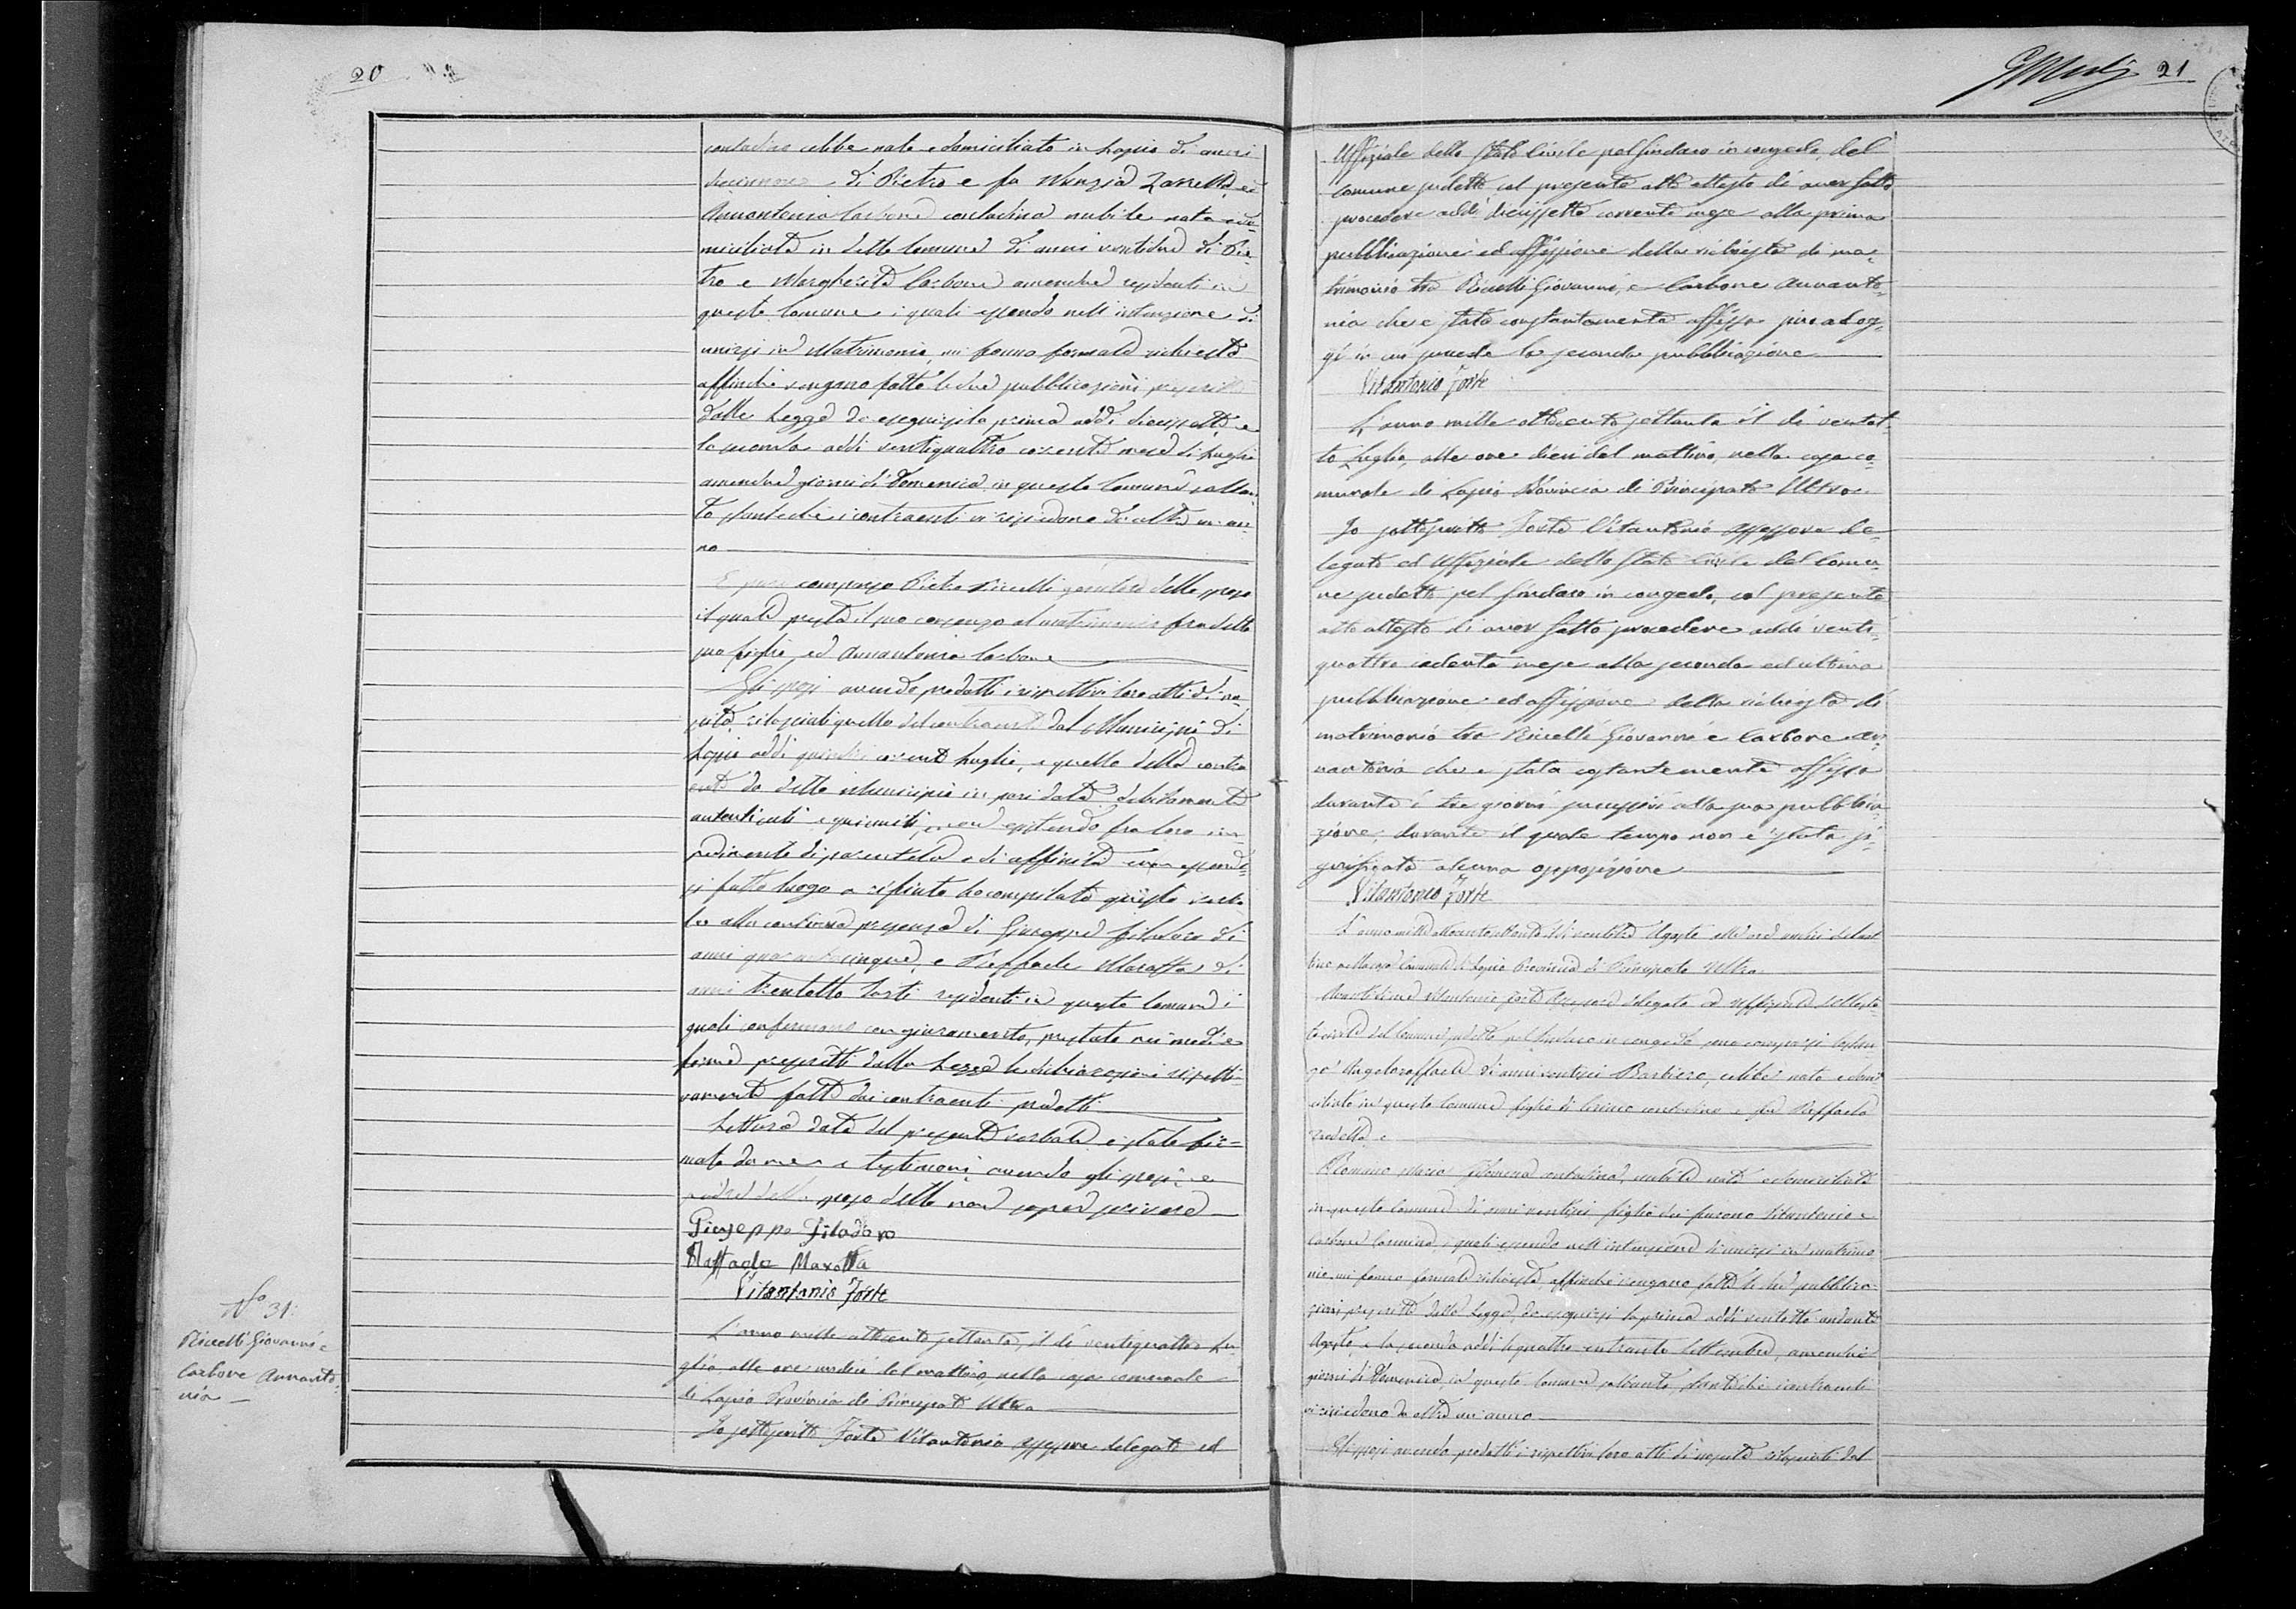 20
contadino celibe nato e domiciliato in Lapio di anni
di Pietro e fu Nunzia Zarrella, ed
Annantonia Carbone contadina nubile nata e do-
miciliata in detto Comune di anni ventidue di Pie-
tro e Margherita Carbone amendue residenti in
questo Comune i quali essendo nell'intenzione di
unirsi in Matrimonio, mi fanno formale richiesta
affinchè vengano fatte le due pubblicazioni prescritte
dalla Legge da eseguirsi la prima addì diciassette e
la seconda addì ventiquattro corrente mese di Luglio
amendue giorni di Domenica in questo Comune soltan-
to stantechè i contraenti vi risiedono da oltre un an-
no
È pure comparso Pietro Riccelli genitore dello sposo
il quale presta il suo consenso al matrimonio fra detto
suo figlio ed Annantonia Carbone
Gli sposi avendo prodotti i rispettivi loro atti di na-
scita rilasciati quello del contraente dal Municipio di
Lapio addì quindici corrente Luglio, e quello della contra
ente da detto Municipio in pari data debitamente
autenticati e non esistendo fra loro im-
pedimento di parentela e di affinità non essendo-
si fatto luogo a rifiuto ho compilato questo verba
le alla continua presenza di Giuseppe Filadoro di
anni quarantacinque, e Raffaele Marotta di
anni trentotto Sarti residenti in questo Comune i
quali confermano con giuramento, prestato nei modi e
forme prescritti dalla Legge le dichiarazioni rispetti
vamente fatte dai contraenti predetti
Lettura data del presente verbale è stato fir-
mato da me e testimoni, avendo gli sposi e
padre dello sposo detto non saper scrivere
Giuseppe Filadoro
Raffaele Marotta
Vitantonio Forte
N.º 31.
Riccelli Giovanni e
Carbone Annanto
nia
L'anno mille ottocento settanta, il dì ventiquattro Lu-
glio alle ore undici del mattino nella casa comunale
di Lapio Provincia di Principato Ultra
Io sottoscritto Forte Vitantonio assessore delegato ed
21
Uffiziale dello Stato Civile pel sindaco in congedo, del
Comune sudetto col presente atto attesto di aver fatto
procedere addì diciassette corrente mese alla prima
pubblicazione ed affissione della richiesta di ma-
trimonio tra Riccelli Giovanni, e Carbone Annanto-
nia che è stata constantemente affissa sino ad og-
gi in cui succede la seconda pubblicazione
Vitantonio Forte
L'anno mille ottocento settanta il dì ventot-
to Luglio, alle ore dieci del mattino, nella casa co-
munale di Lapio Provincia di Principato Ultra.
Io sottoscritto Forte Vitantonio assessore de-
legato ed Uffiziale dello Stato Civile del Comu-
ne sudetto, pel sindaco in congedo, col presente
atto attesto di aver fatto procedere addì venti-
quattro cadente mese alla seconda ed ultima
pubblicazione ed affissione della richiesta di
matrimonio tra Riccelli Giovanni e Carbone An-
nantonia che è stata costantemente affissa
durante i tre giorni successivi alla sua pubblica-
zione, durante il quale tempo non è stata si-
gnificata alcuna opposizione
Vitantonio Forte
L'anno mille ottocento settanta il dì Agosto alle ore undici del mat
tino nella casa Comunale di Lapio Provincia di Principato Ultra.
Avanti di me Vitantonio Forte Assessore delegato ed uffiziale dello sta
to civile del Comune sudetto pel Sindaco in congedo sono comparsi
Angeloraffaele di anni ventisei Barbiere, celibe nato e domi
ciliato in questo Comune figlio di contadino e fu Raffaela
Romano Maria Filomena contadina, nubile nata e domiciliata
in questo Comune di anni ventisei figlia dei furono Vitantonio e
Carbone Carmina, i quali essendo nell'intenzione di unirsi in matrimo
nio mi fanno formale richiesta, affinchè vengano fatte le due pubblica-
zioni prescritte dalla Legge, da eseguirsi la prima addì ventotto andante
Agosto, e la seconda addì quattro entrante Settembre, amendue
giorni di Domenica, in questo Comune soltanto, stantechè i contraenti
vi risiedono da oltre un anno
Gli sposi avendo prodotti i rispettivi loro atti di nascita rilasciati dal